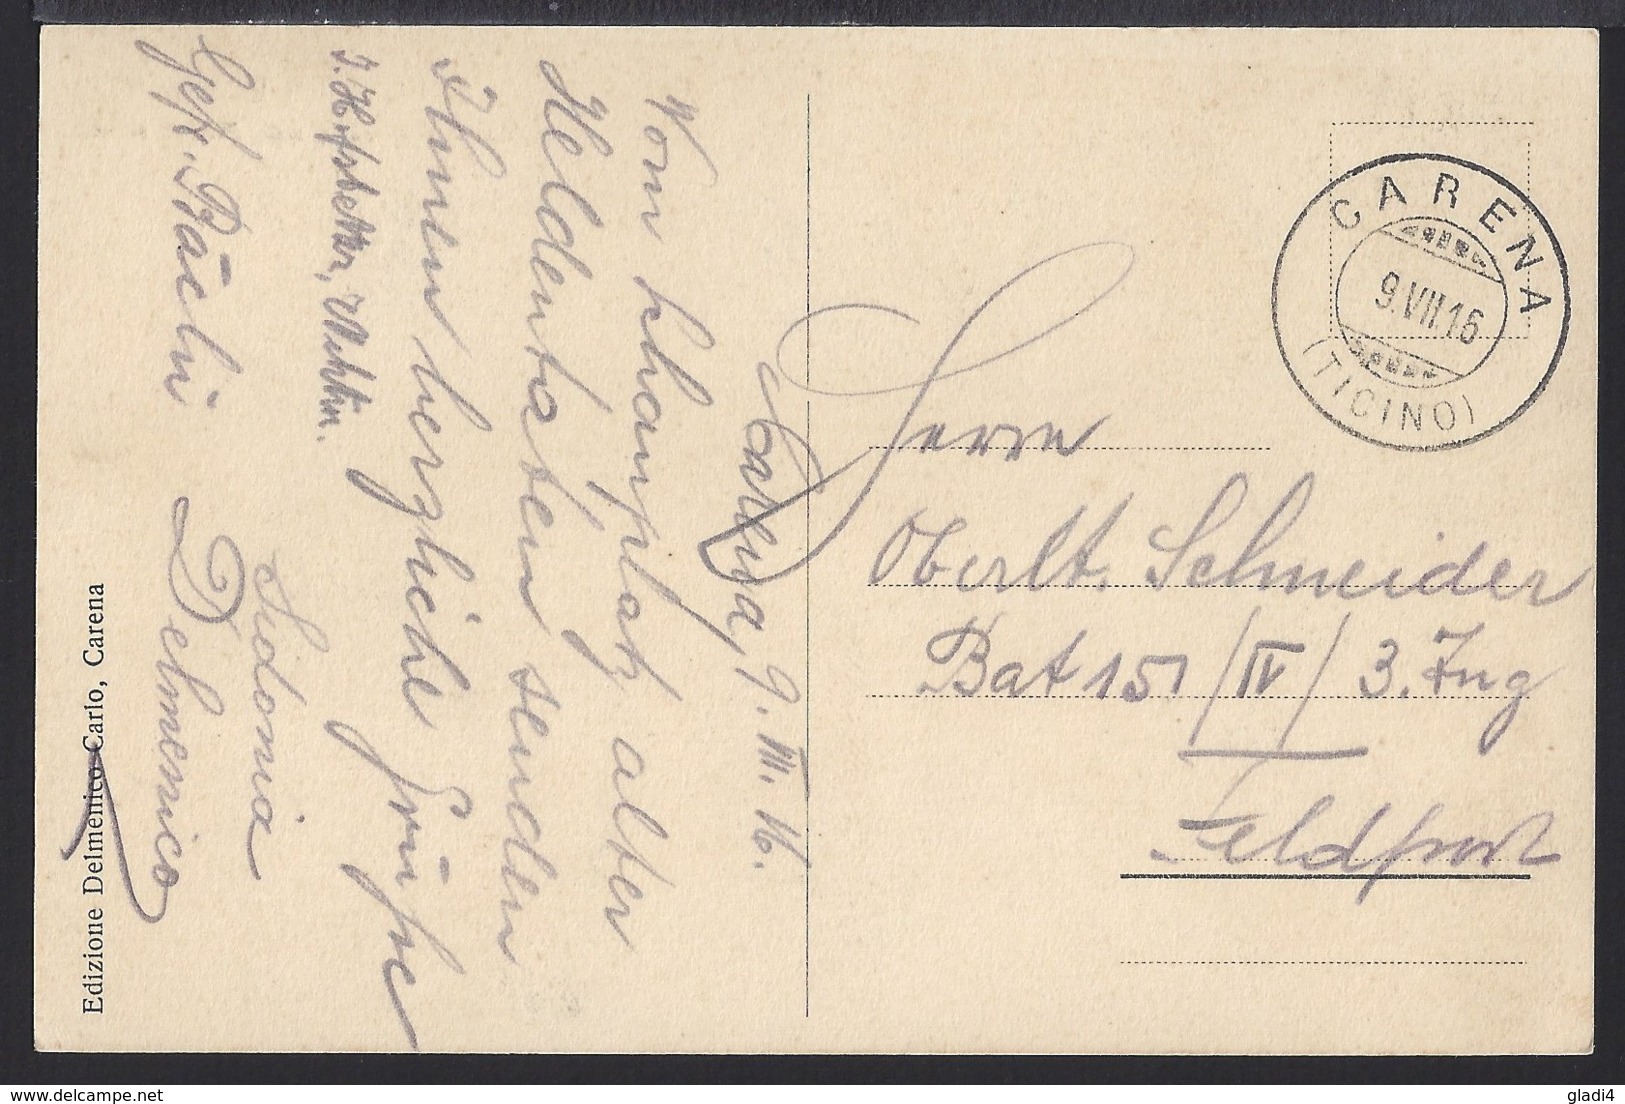 Carena, 9. III. 16.
Vom Schauplatz alter
Heldentaten senden
Ihnen herzliche Grüsse
Gefr. Bächi
Sidonia
Delmenico
Edizione Delmenico Carlo, Carena
CARENA
9.VII.16
(TICINO)
Herrn
Oberlt. Schneider
Bat 151/IV/3. Zug
Feldpost
gladi4